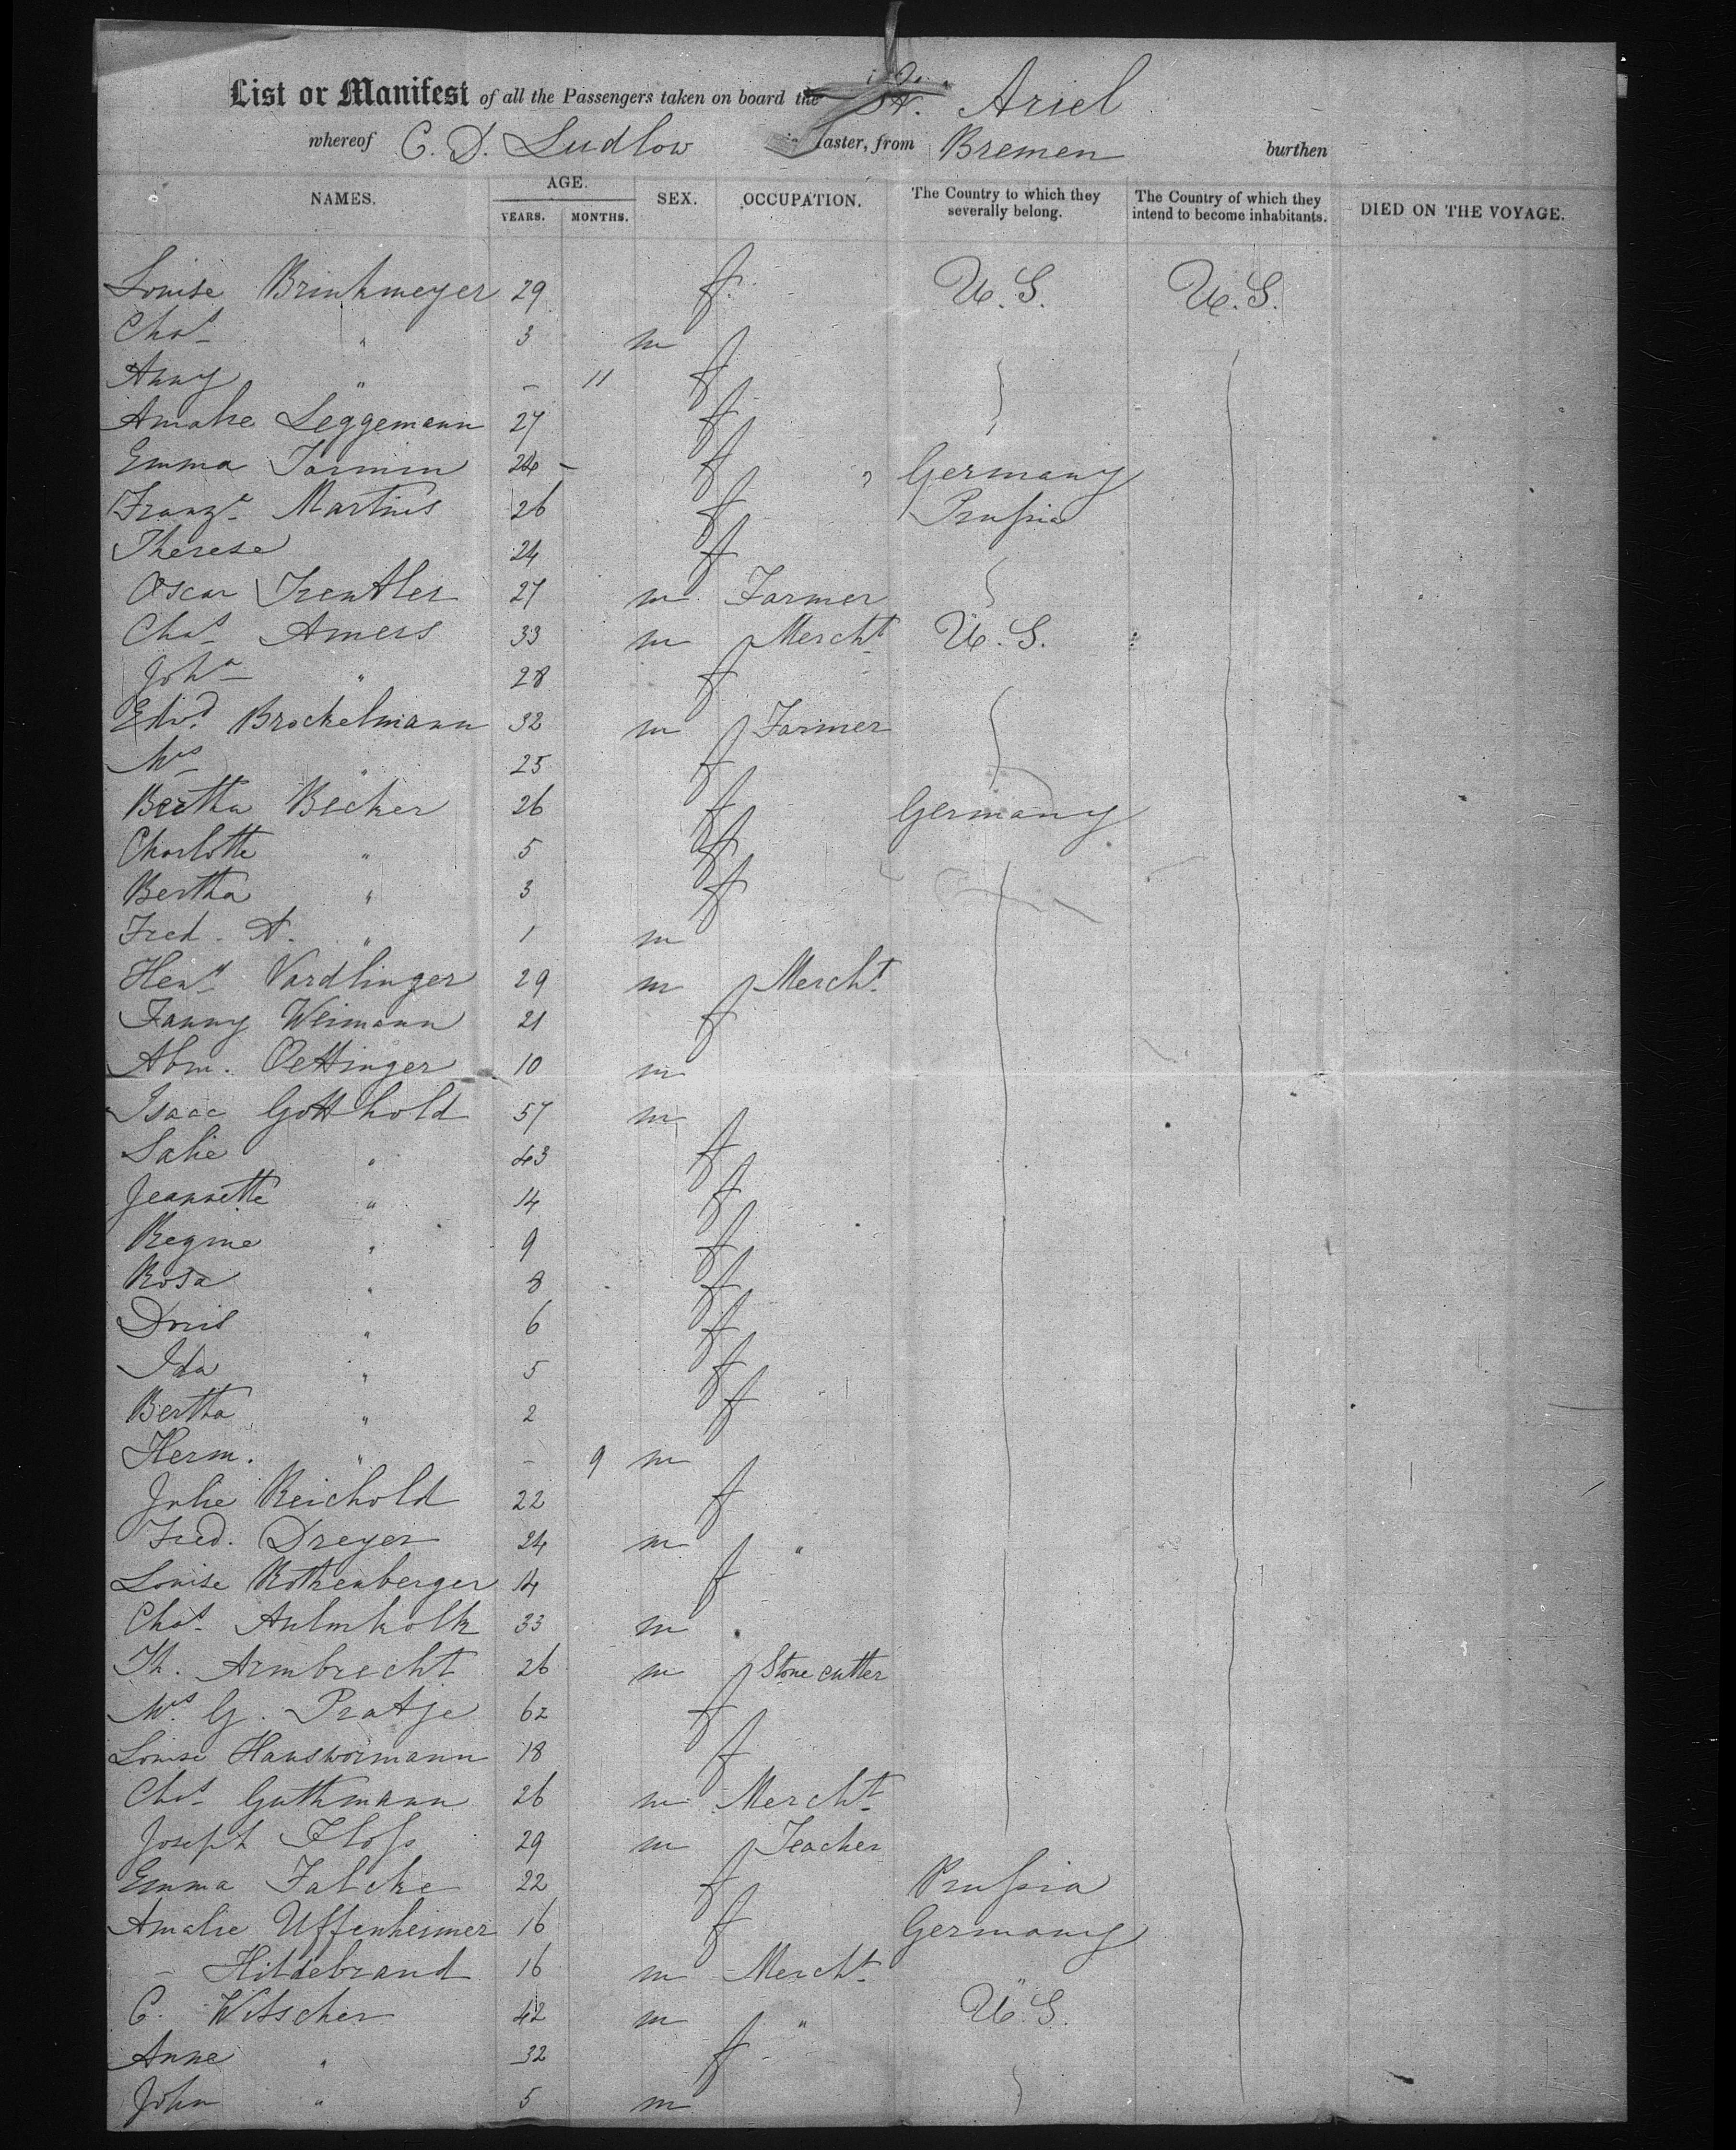 List or Manifest of all the Passengers taken on board the St. Ariel
whereof C. D. Ludlow Master, from Bremen burthen
NAMES. AGE. YEARS. MONTHS. SEX. OCCUPATION. The Country to which they severally belong. The Country of which they intend to become inhabitants. DIED ON THE VOYAGE.
Louise Brinkmeyer 29 f. U.S. U.S.
Chas " 3 m
Anny " - 11 f
Amalie Leggemann 27 f
Emma Tormin 24 - f " Germany
Franz. Martins 26 f Prussia
Therese 24 f
Oscar Trentler 27 m Farmer
Chas Amers 33 m Mercht U.S.
Joha " 28 f
Edwd Brockelmann 32 m Farmer
Mrs " 25 f
Bertha Becker 26 f Germany
Charlotte " 5 f
Bertha " 3 f
Fred. A. " 1 m
Heny Vardlinger 29 m Mercht
Fanny Weimann 21 f
Abm. Oettinger 10 m
Isaac Gotthold 57 m
Salie " 43 f
Jeannette " 14 f
Regine " 9 f
Rosa " 8 f
Doris " 6 f
Ida " 5 f
Bertha " 2 f
Herm. " - 9 m
Julie Reichold 22 f
Fred. Dreyer 24 m "
Louise Rothenberger 14 f
Chas 33 m
Th. Armbrecht 26 m Stone cutter
Mrs G. Pratje 62 f
Louise Hanswormann 18 f
Chs Guthmann 26 m Mercht
Joseph Floss 29 m Teacher
Emma Falcke 22 f Prussia
Amalie Uffenheimer 16 f Germany
- Hildebrand 16 m Mercht
C. Witscher 42 m " U.S.
Anne " 32 f
John " 5 m